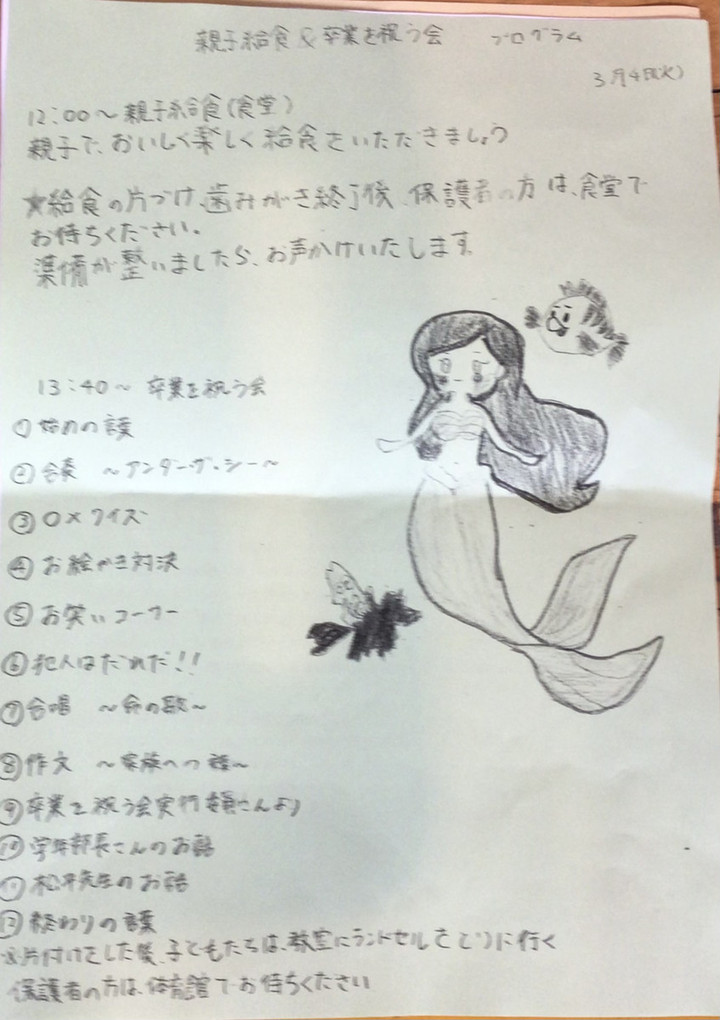 親子給食&卒業を祝う会 プログラム
3月4日(火)
12:00～親子給食(食堂)
親子で、おいしく楽しく給食をいただきましょう
★給食の片づけ、歯みがき終了後、保護者の方は、食堂で
お待ちください。
準備が整いましたら、お声かけいたします。
13:40～ 卒業を祝う会
①始めの言葉
②合奏 ～アンダー・ザ・シー～
③○×クイズ
④お絵かき対決
⑤お笑いコーナー
⑥犯人はだれだ!!
⑦合唱 ～命の歌～
⑧作文 ～家族への～
⑨卒業を祝う会実行委員さんより
⑩学年部長さんのお話
⑪松井先生のお話
⑫終わりの言葉
※片付けをした後、子どもたちは、教室にランドセルをとりに行く
保護者の方は、体育館でお待ちください